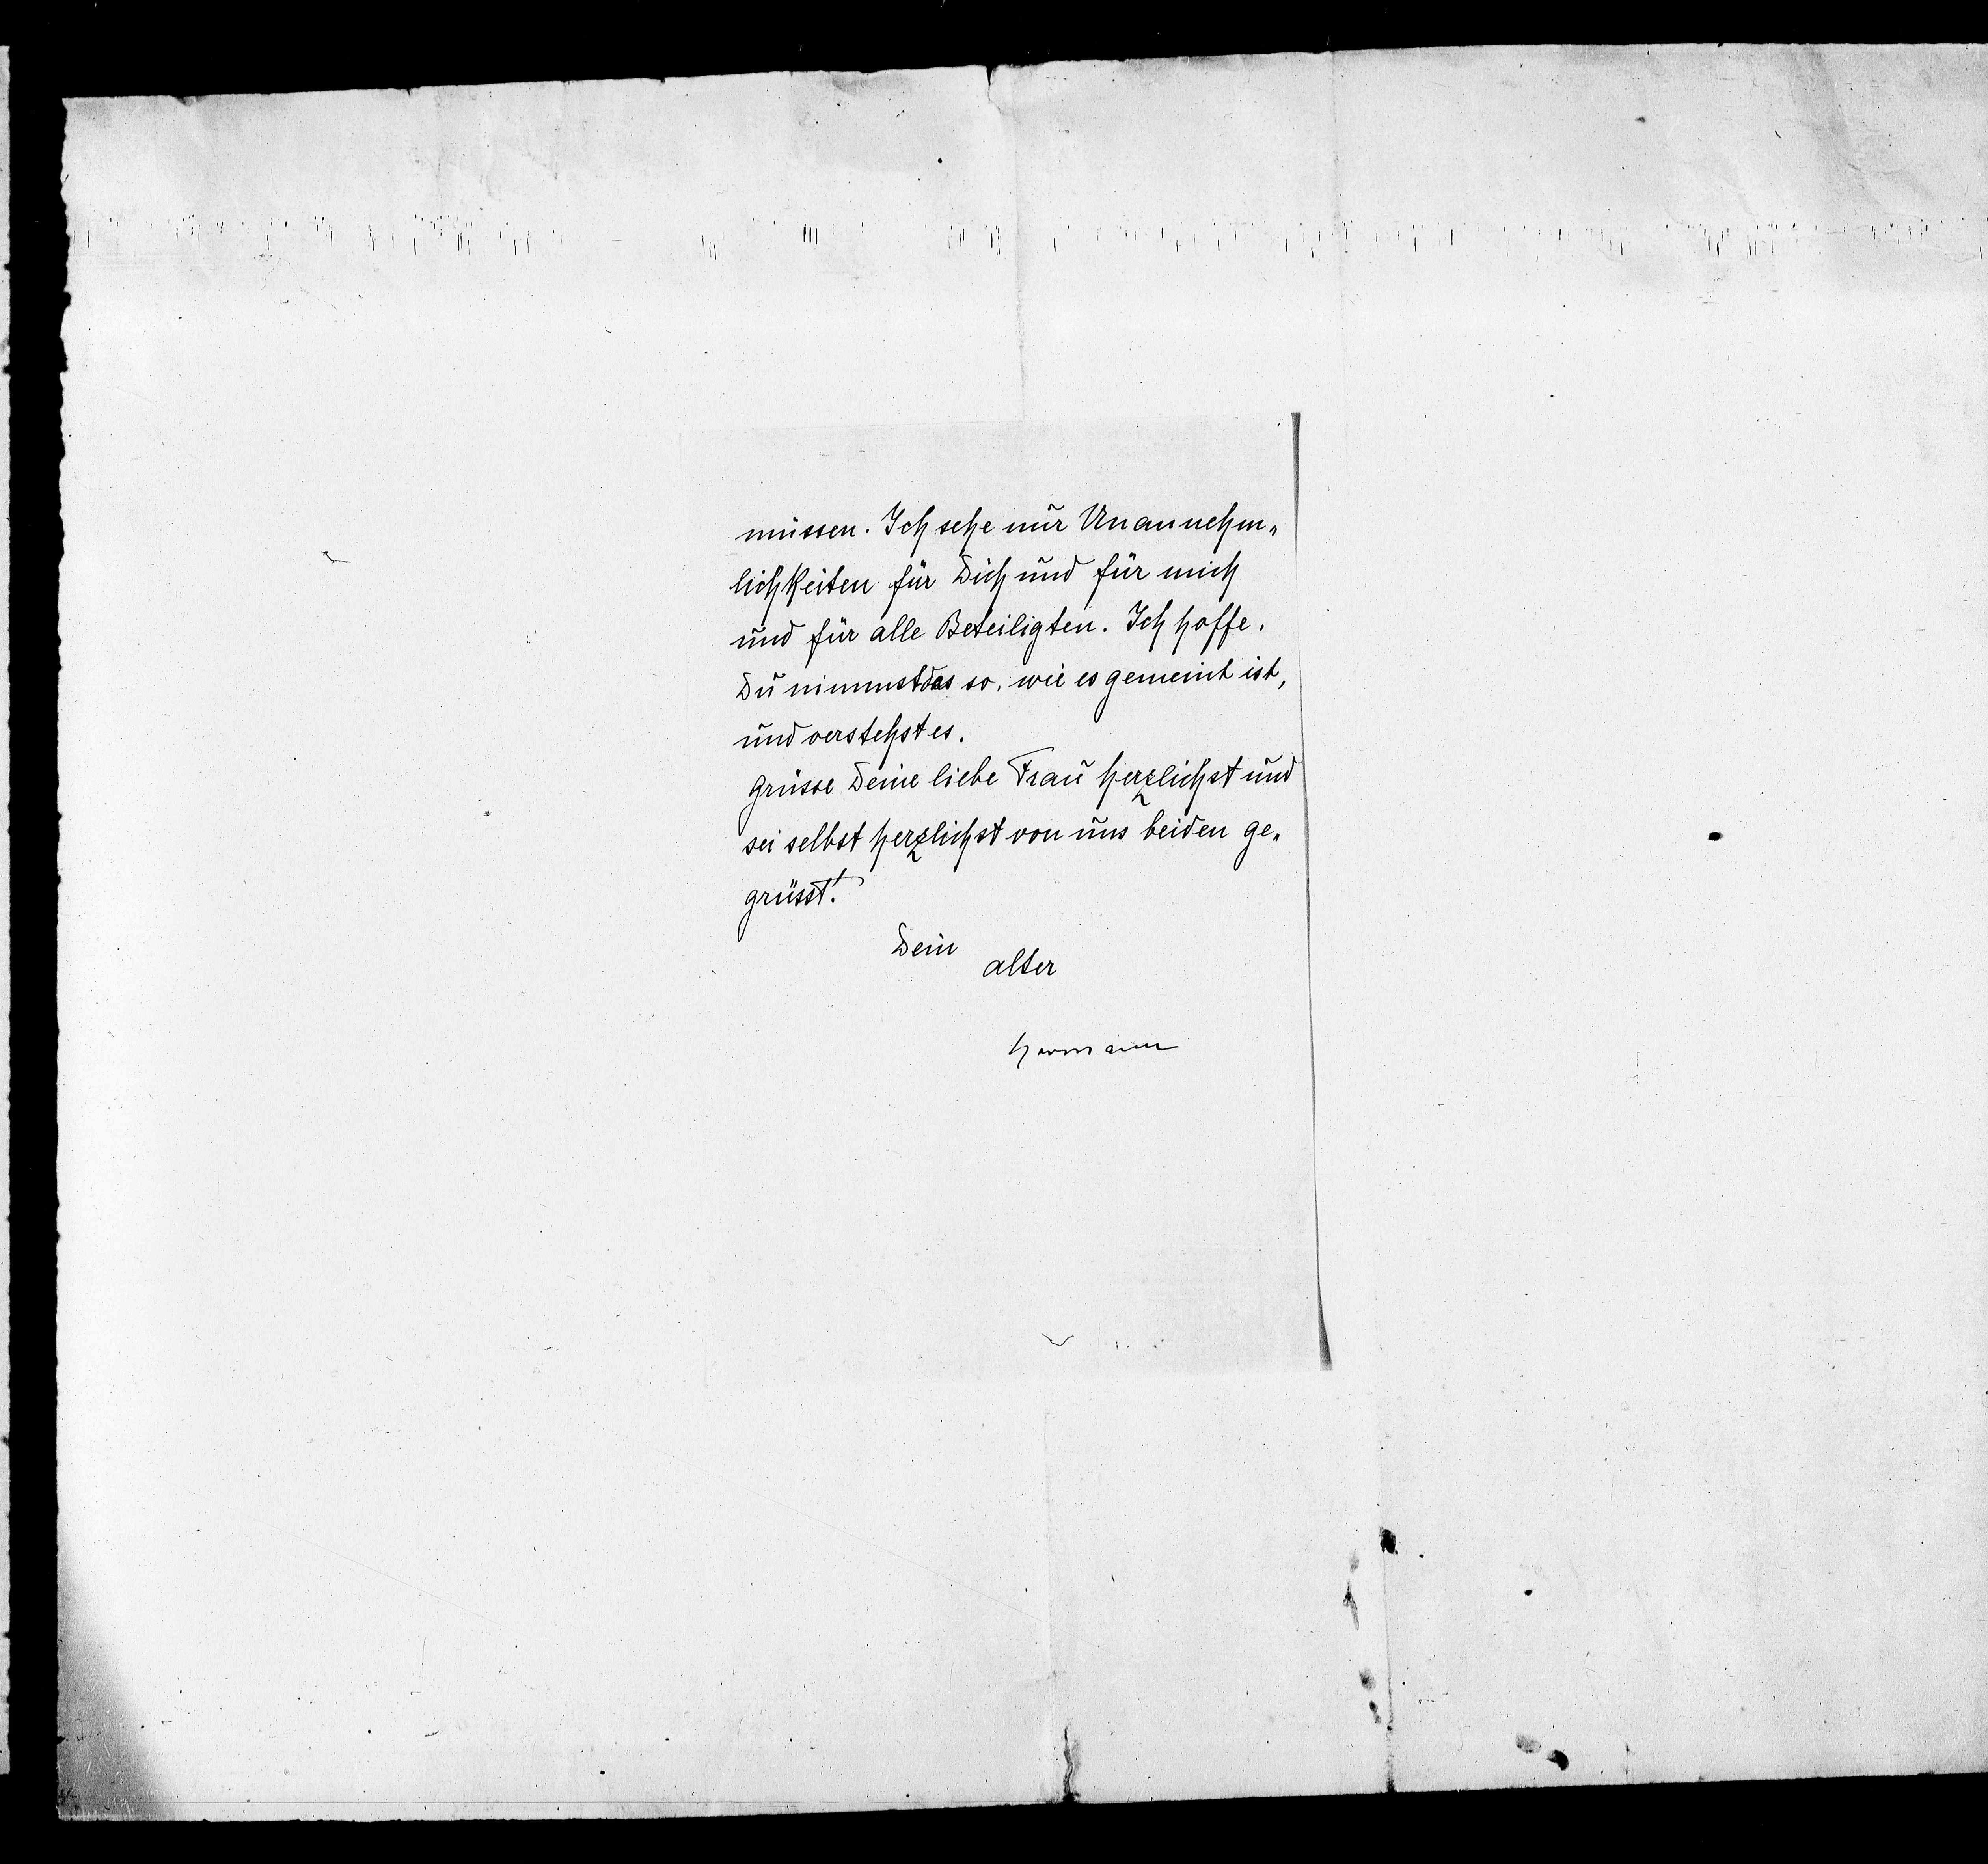 müssen. Ich sehe nur Unannehm„
lichkeiten für Dich und für mich
und für alle Beteiligten. Ich hoffe,
Du nimmst das so, wie es gemeint ist,
und verstehst es.
Grüsse Deine liebe Frau herzlichst und
sei selbst herzlichst von uns beiden ge„
grüsst!
Dein
alter
Hermann